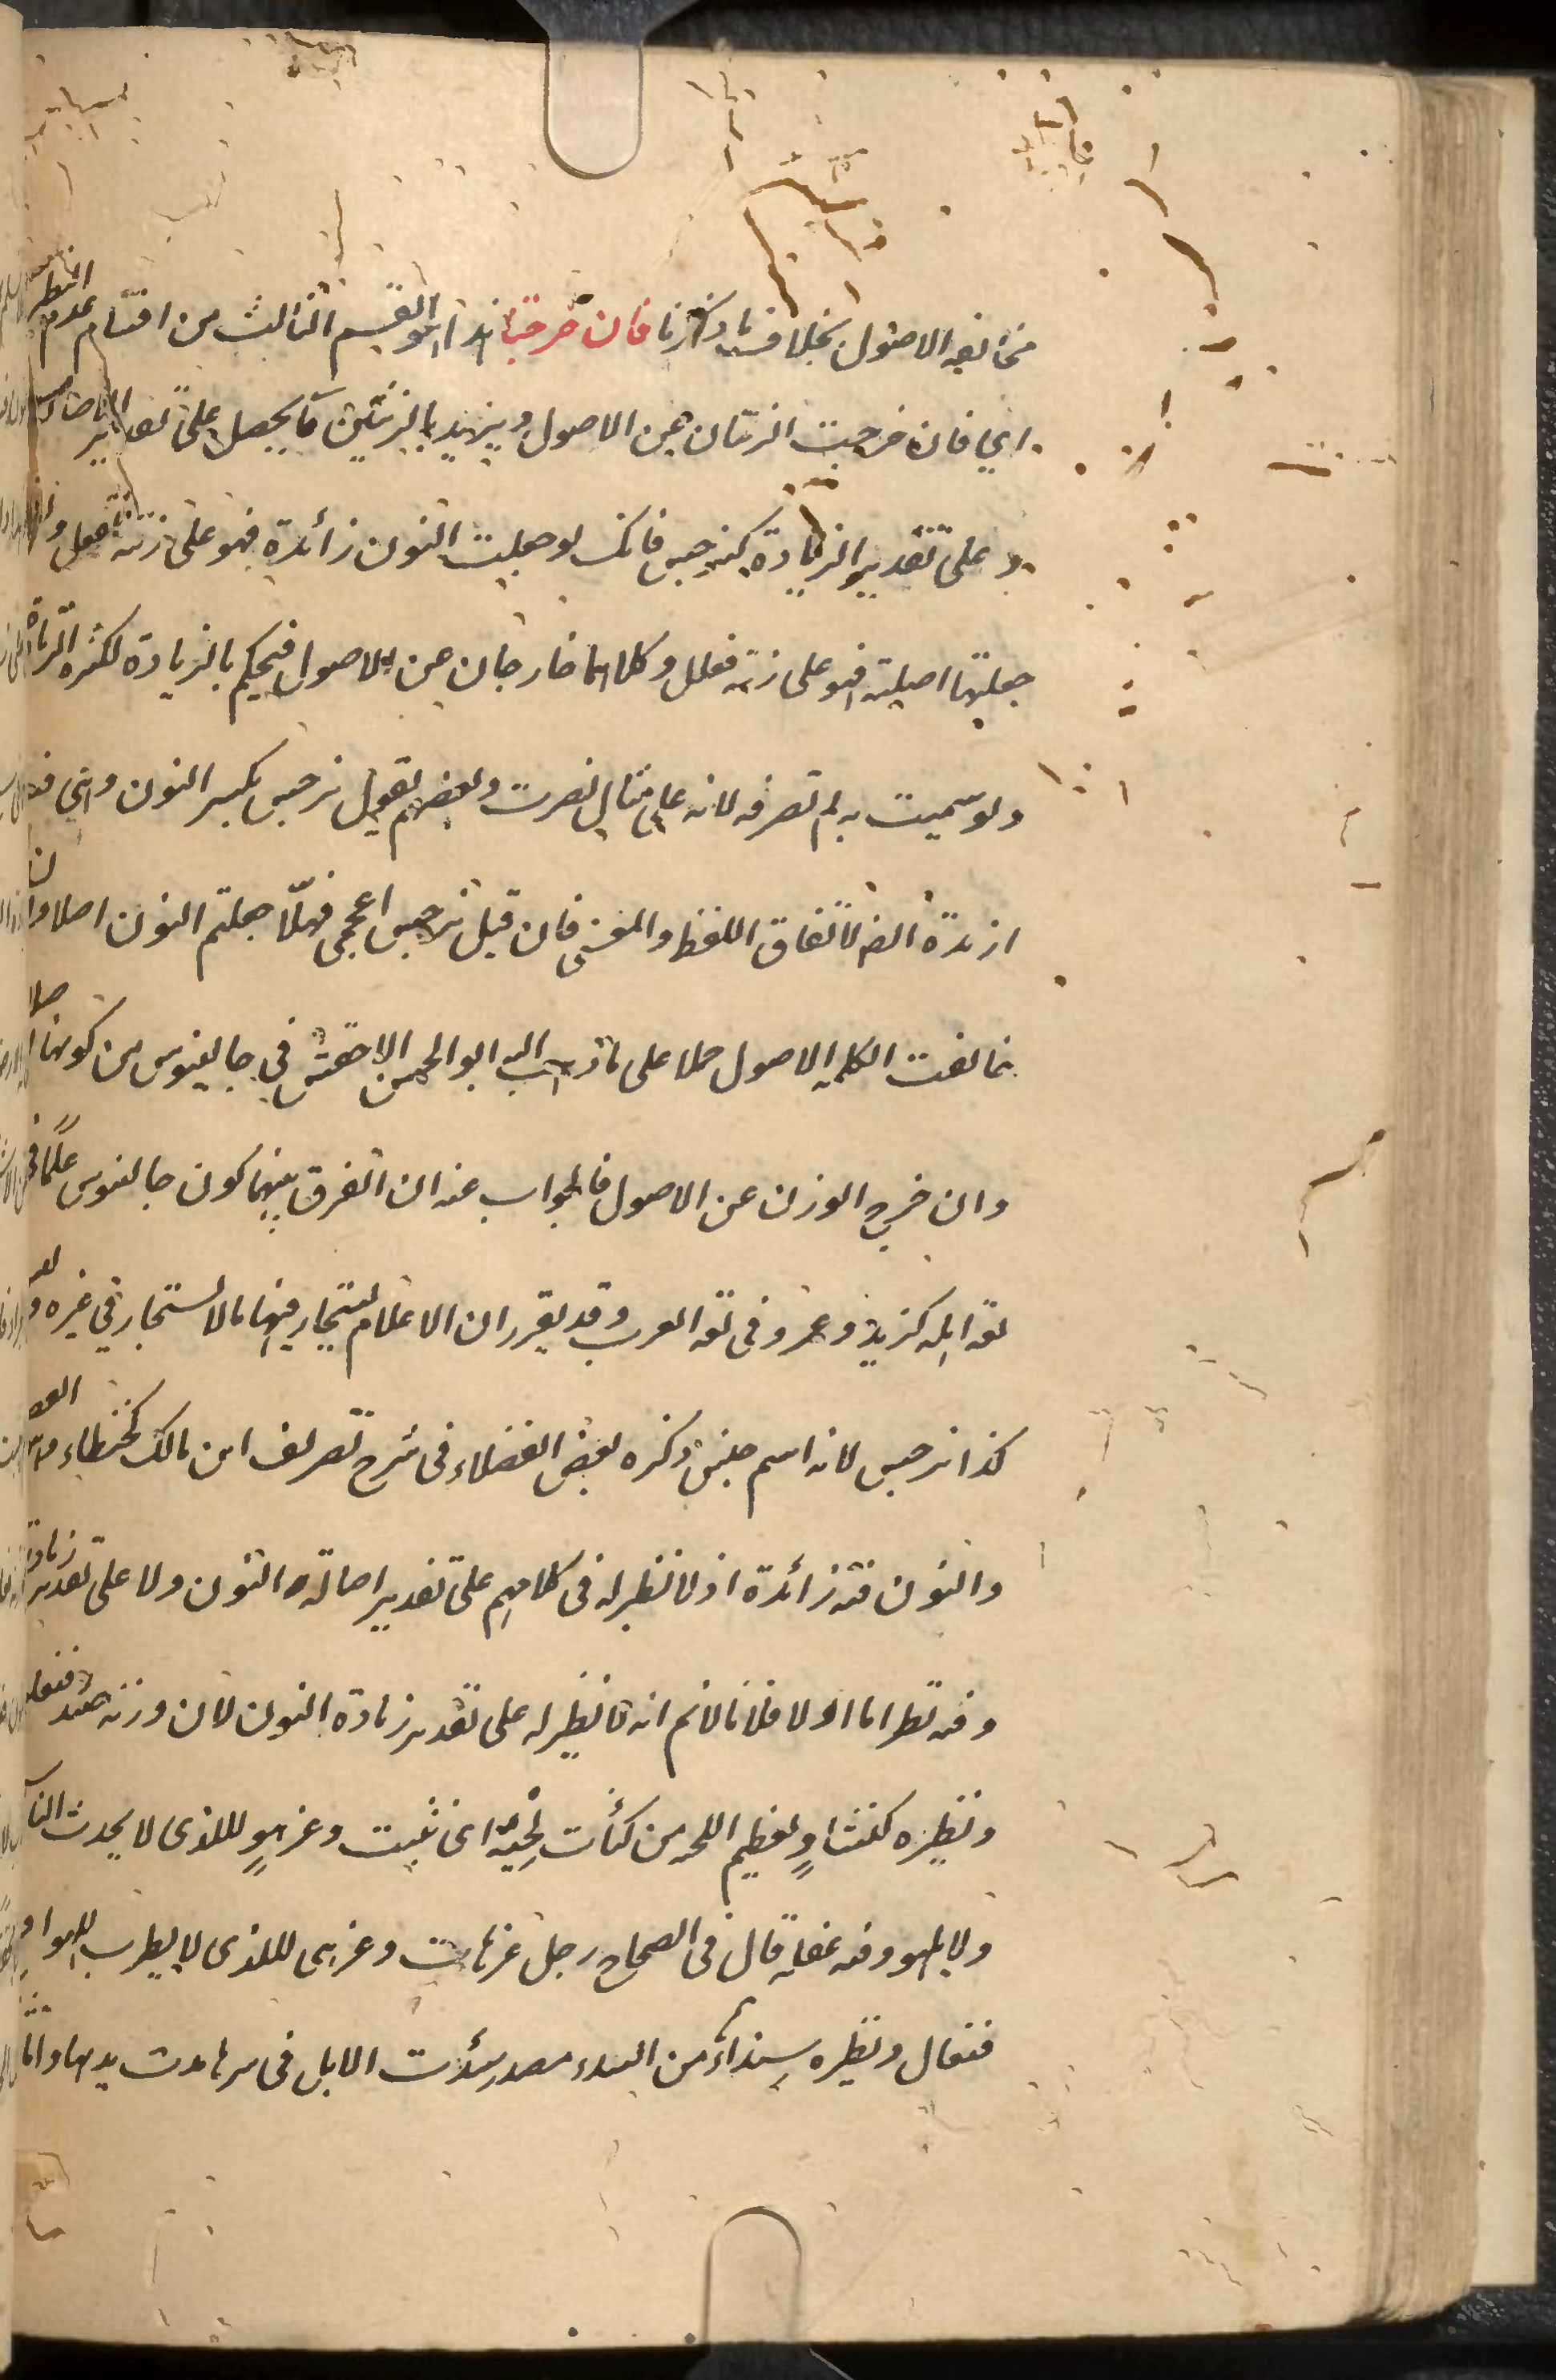 مخالفه الاصول بخلاف ما ذكرنا فان خرجتا هذا هو القسم الثالث من اقسام عدم النظير
اي فان خرجت الزنتان عن الاصول ويزيد بالزنتين ما يحصل على تقدير الاصالة
وعلى تقدير الزيادة كنرجس فانك لو جعلت النون زائدة فهو على زنة نفعل وان
جعلتها اصلية فهو على زنة فعلل وكلاهما خارجان عن الاصول فيحكم بالزيادة لكثرة الزيادة
ولو سميت به لم تصرفه لانه على مثال نصرت وبعضهم يقول نرجس بكسر النون وهي
زائدة ايضا لاتفاق اللفظ والمعنى فان قيل نرجس اعجمى فهلّا جعلتم النون اصلا وان
خالفت الكلمه الاصول حملا على ما ذهب اليه ابو الحسن الاخفش في جالينوس من كونها اصلا
وان خرج الوزن عن الاصول فالجواب عنه ان الفرق بينهما كون جالينوس علمًا في
لغة اهله كزيد وعمرو في لغه العرب وقد تقرر ان الاعلام يستجاز فيها ما لا يستجاز في غيره
كذا نرجس لانه اسم جنس ذكره بعض الفضلاء فى شرح تصريف ابن مالك كحنطاء و
والنون فيه زائدة اذ لا نظير له فى كلامهم على تقدير اصالة النون ولا على تقدير زيادة
وفيه نظر اما اولا فلانا لانم انه لا نظير له على تقدير زيادة النون لان وزنه عند فنعلو
ونظيره كنثاوٍ لعظيم اللحيه من كثأت لحيته اى نبتت وعنزهوٍ للذى لا يحدث النسا
ولا يلهو وفيه غفلة قال فى الصحاح رجل عزهات وعزهى للذى لا يطرب للهو او
فنعال ونظيره سِنداءٌ من السدء مصدر سدأت الابل فى سرها مدت يديها واما